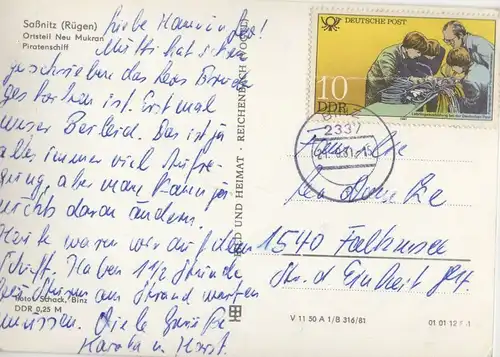 Saßnitz (Rügen)
Ortsteil Neu Mukran
Piratenschiff
Liebe
Mutti hat
geschrieben das
gestorben ist. Erst mal
unser Beileid. Das ist ja
alles immer viel Aufre-
gung, aber man kann ja
nichts daran ändern.
Heute waren wir auf dem
Schiff. Haben 1 1/2 Stunde
am Strand warten
müssen. Viele Grüße
u. Horst.
Foto: Schack, Binz
DDR 0,25 M
BILD UND HEIMAT · REICHENBACH
V 11 50 A 1/B 316/81
01 01 12
DEUTSCHE POST
10
DDR
2337
Familie
1540 Falkensee
Str. d. Einheit